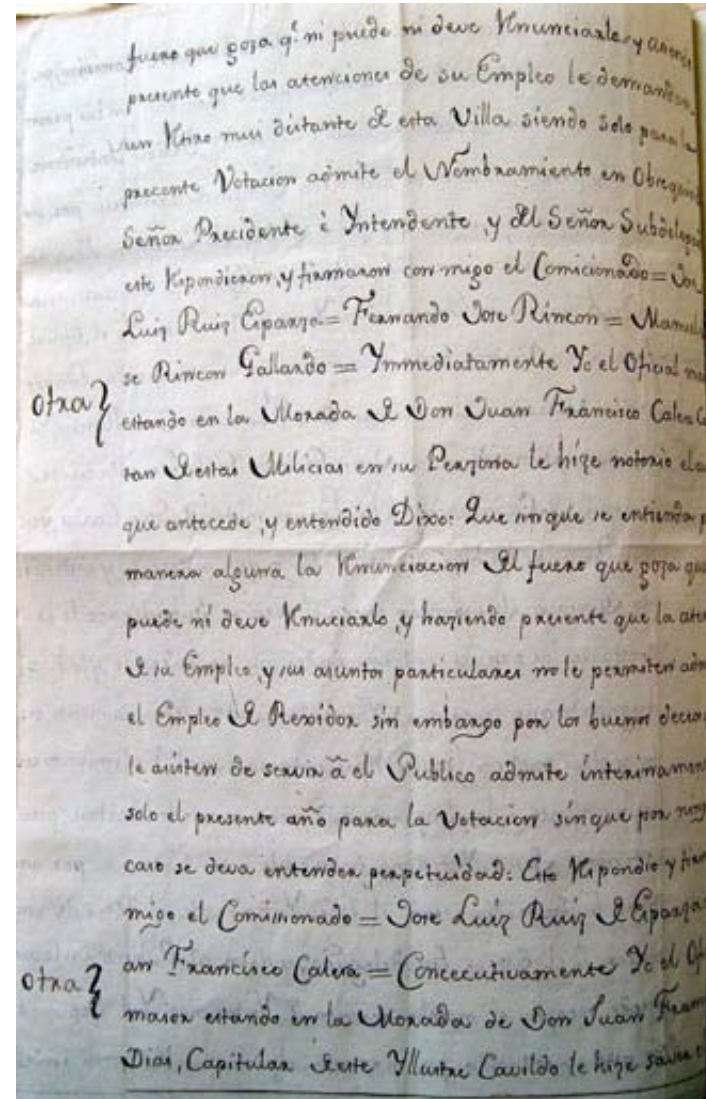 fuero que goza q.e ni puede ni deve Rnunciarle, y
precente que las atenciones de su Empleo le demandan
un Rtiro mui distante de esta Villa siendo solo para la
precente Votacion admite el Nombramiento en Obsequio
Señor Precidente è Yntendente, y del Señor Subdelegad
este Respondieron, y firmaron con migo el Comicionado = Jose
Luiz Ruiz Esparza = Fernando Jose Rincon = Manuel
se Rincon Gallardo = Ymmediatamente Yo el Oficial ma
Otra } estando en la Morada de Don Juan Francisco Calera Ca
tan de estas Milicias en su Perzona le hize notorio el a
que antecede, y entendido Dixo: Que sin que se entienda p
manera alguna la Rnunciacion del fuero que goza que
puede ni deve Rnuciarlo, y haziendo precente que la aten
de su Empleo, y sus asuntos particulares no le permiten adm
el Empleo de Rexidor sin embargo por los buenos deceos
le asisten de servir â el Publico admite interinamen
solo el presente año para la Votacion sin que por ning
caso se deva entender perpetuidad: Esto Respondio y firm
migo el Comissionado = Jose Luiz Ruiz de Esparza
an Francisco Calera = Concecutivamente Yo el Ofi
Otra } maior estando en la Morada de Don Juan Fran
Dias, Capitular de este Yllustre Cavildo le hize saver